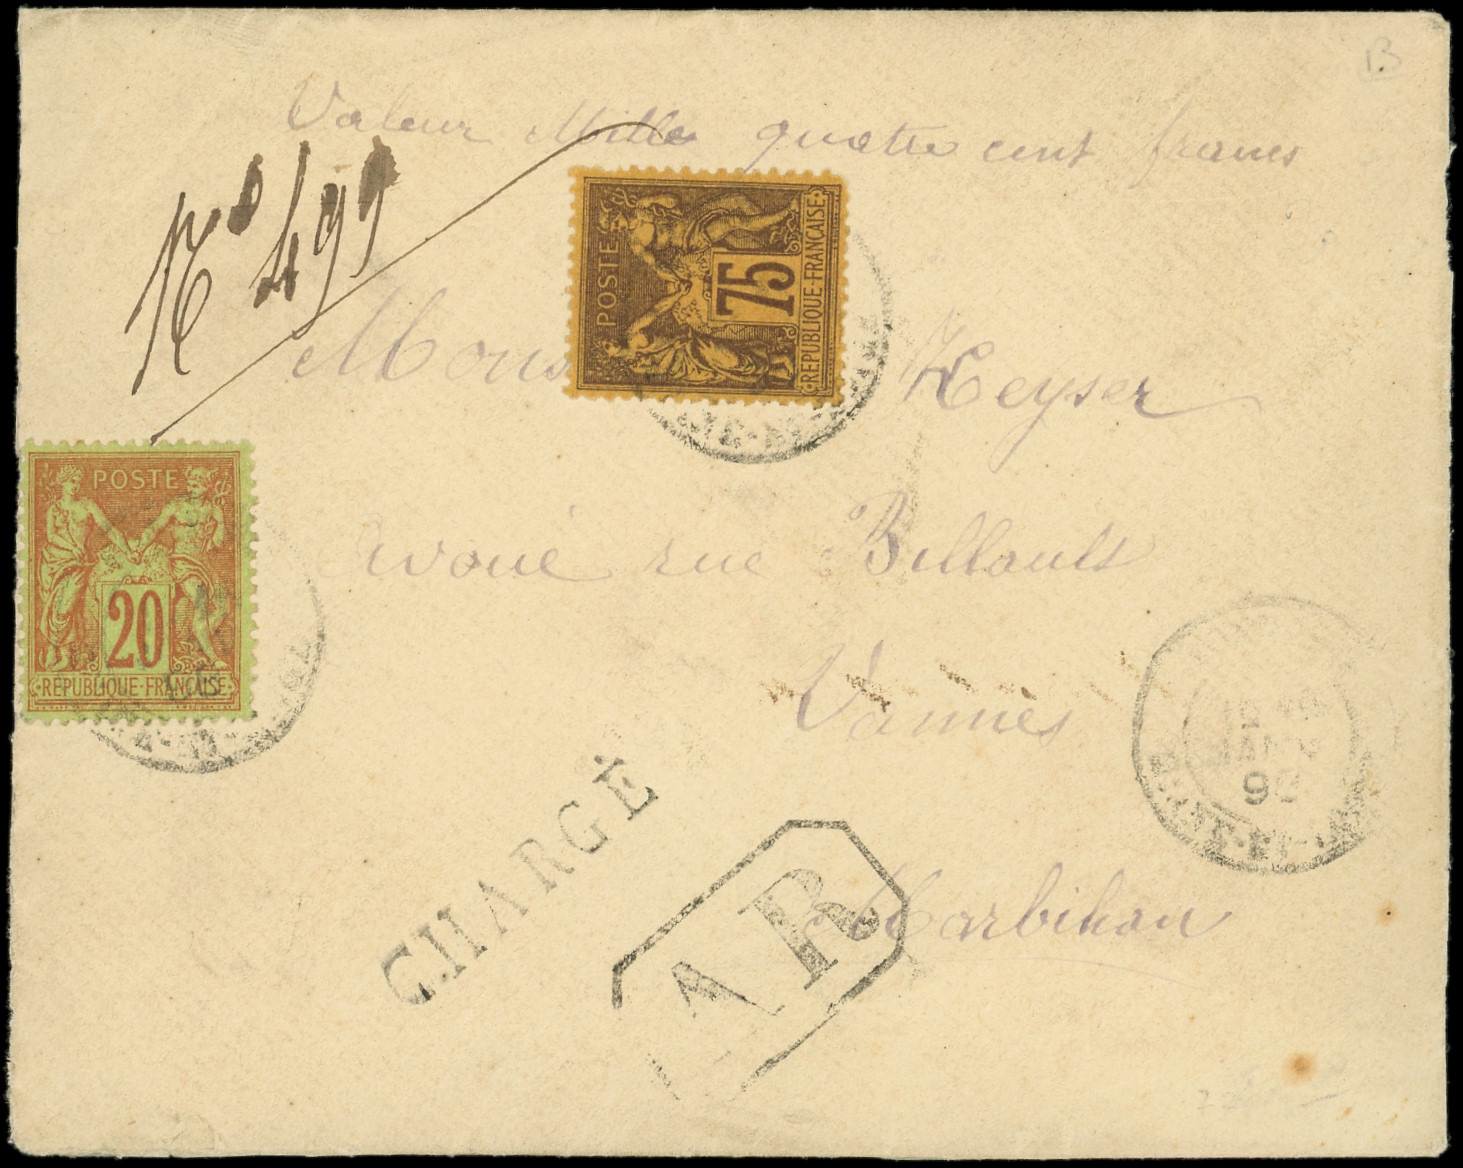 Valeur Mille quatre cent francs
No 499
POSTE
75
REPUBLIQUE-FRANÇAISE
Mons Keyser
POSTE
20
REPUBLIQUE-FRANÇAISE
Avoué rue Billault
Vannes
92
CHARGÉ
AR
Morbihan
B